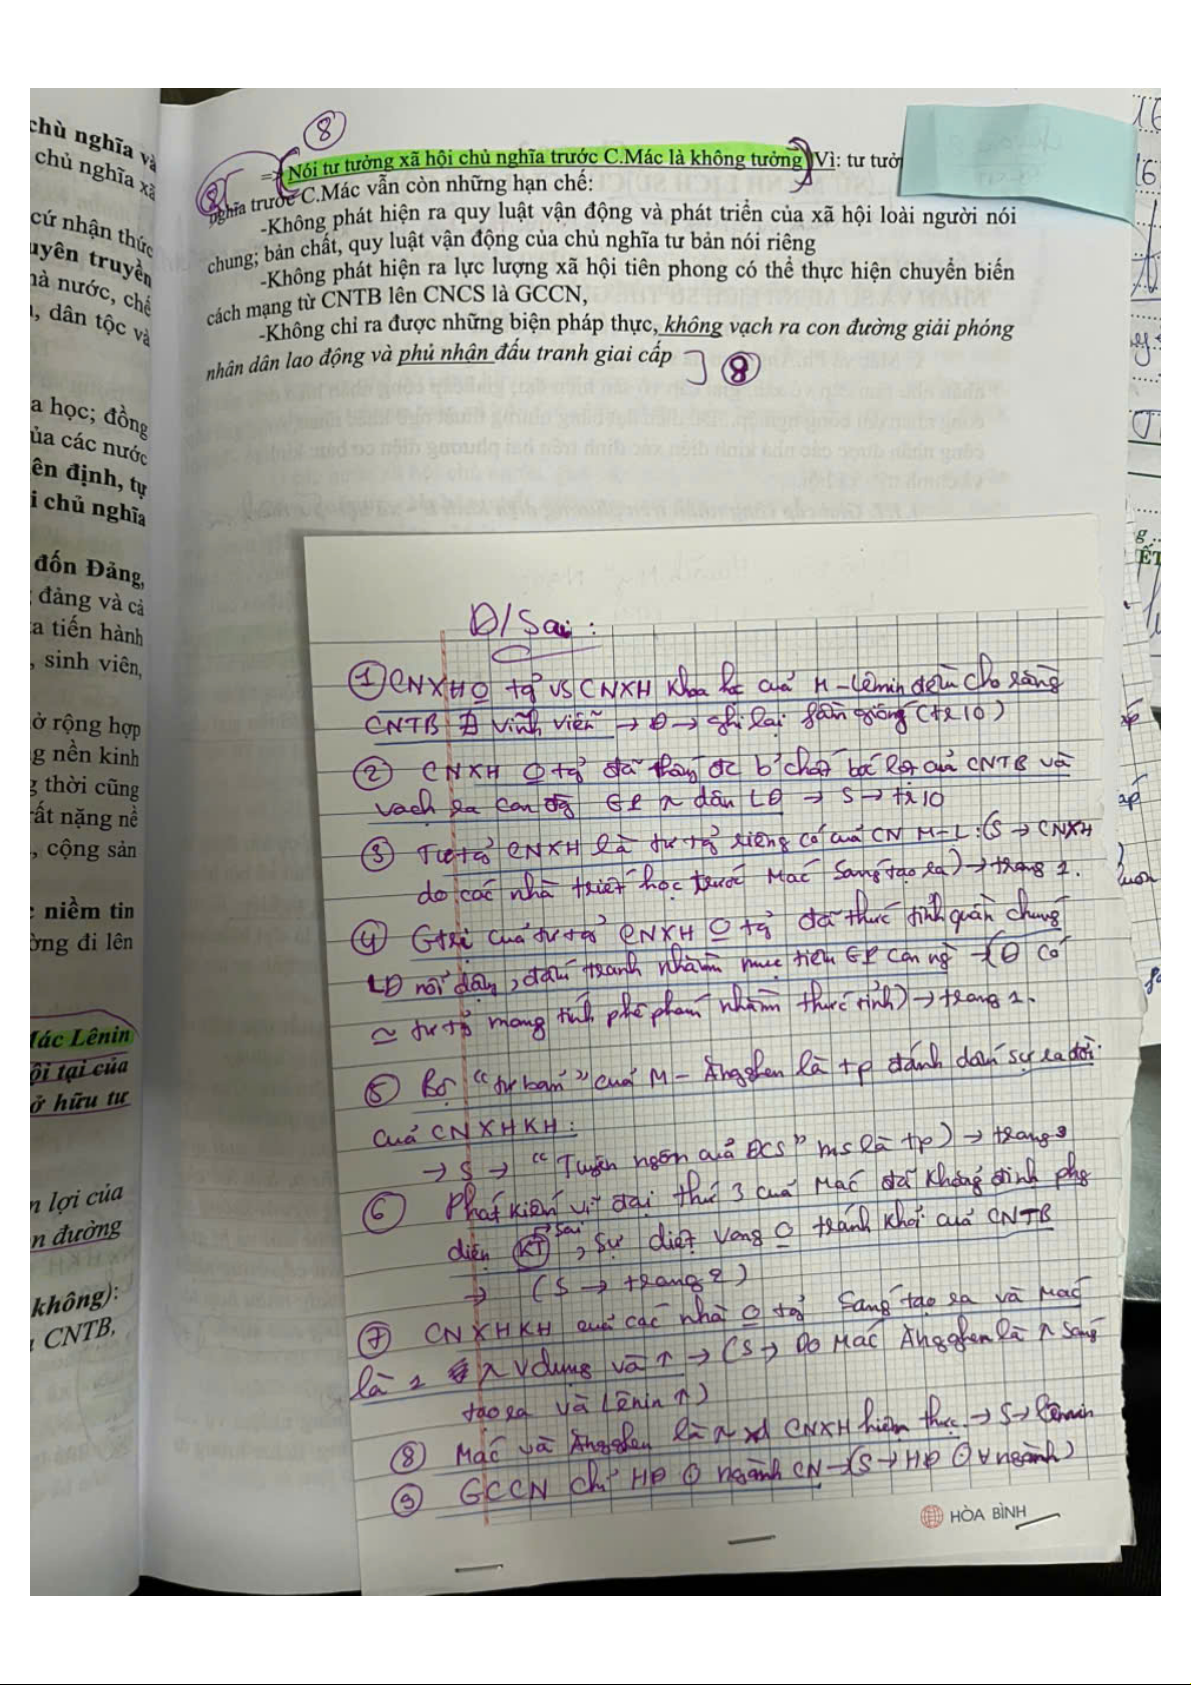 chủ nghĩa và
chủ nghĩa xã
cứ nhận thức
uyên truyền
hà nước, chế
, dân tộc và
a học; đồng
ủa các nước
ên định, tự
i chủ nghĩa
đốn Đảng,
đảng và cả
a tiến hành
, sinh viên,
ở rộng hợp
g nền kinh
g thời cũng
ất nặng nề
, cộng sản
niềm tin
ờng đi lên
Mác Lênin
ồi tại của
ở hữu tư
n lợi của
n đường
không):
CNTB,
8
=> Nói tư tưởng xã hội chủ nghĩa trước C.Mác là không tưởng Vì: tư tưở
8 nghĩa trước C.Mác vẫn còn những hạn chế:
-Không phát hiện ra quy luật vận động và phát triển của xã hội loài người nói
chung; bản chất, quy luật vận động của chủ nghĩa tư bản nói riêng
-Không phát hiện ra lực lượng xã hội tiên phong có thể thực hiện chuyển biến
cách mạng từ CNTB lên CNCS là GCCN,
-Không chỉ ra được những biện pháp thực, không vạch ra con đường giải phóng
nhân dân lao động và phủ nhận đấu tranh giai cấp 8
Đ/Sai:
1 CNXH O tg̉ vs CNXH khoa học của M-Lênin đều cho rằng
CNTB vĩnh viễn → Đ → ghi lại gần giống (tr10)
2 CNXH O tg̉ đã thấy đc b'chất bóc lột của CNTB và
vạch ra con đg GP n dân LĐ → S → tr10
3 Tư tg̉ CNXH là tư tg̉ riêng có của CN M-L: (S → CNXH
do các nhà triết học trước Mác sáng tạo ra) → trang 1.
4 Gtrị của tư tg̉ CNXH O tg̉ đã thức tỉnh quần chúng
LĐ nổi dậy, đấu tranh nhằm mục tiêu GP con ng → (Đ có
≃ tư tg̉ mang tính phê phán nhằm thức tỉnh) → trang 1.
5 Bộ "tư bản" của M-Ăngghen là tp đánh dấu sự ra đời
của CNXHKH:
→ S → "Tuyên ngôn của ĐCS" ms là tp) → trang 3
6 Phát kiến vĩ đại thứ 3 của Mác đã khẳng định phg
diện KT → sai, sự diệt vong O tránh khỏi của CNTB
→ (S → trang 2)
7 CNXHKH của các nhà O tg̉ sáng tạo ra và Mác
là 1 n vdụng và ↑ → (S → Do Mác Ăngghen là n sáng
tạo ra và Lênin ↑)
8 Mác và Ăngghen là n xd CNXH hiện thực → S → Lênin
9 GCCN chỉ HĐ ngành CN → (S → HĐ ∀ ngành)
HÒA BÌNH
16
ẾT